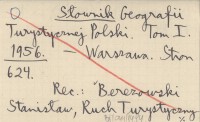 Słownik Geografii
Turystycznej Polski. Tom I.
1956. – Warszawa. Stron
624.
Rec.: Berezowski
Stanisław, Ruch Turystyczny